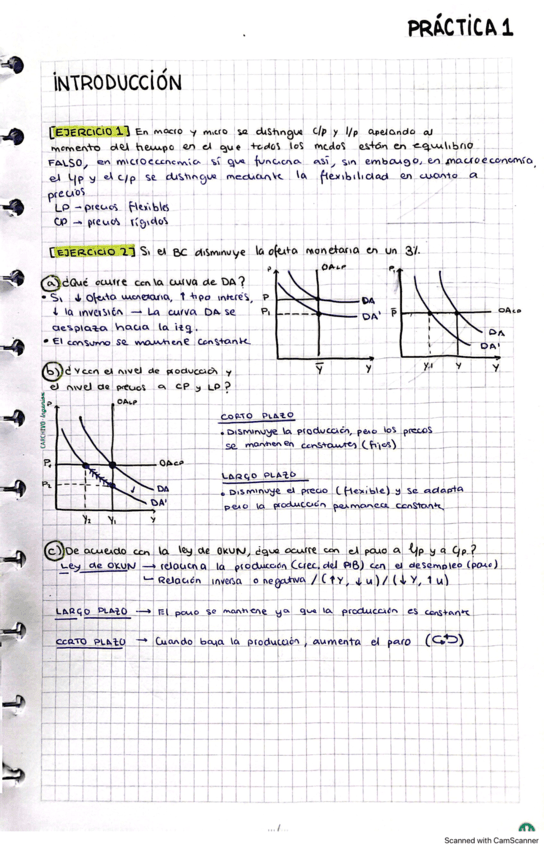 PRÁCTICA 1
INTRODUCCIÓN
[EJERCICIO 1] En macro y micro se distingue c/p y l/p apelando al
momento del tiempo en el que todos los mcdos están en equilibrio
FALSO, en microeconomía sí que funciona así, sin embargo, en macroeconomía,
el l/p y el c/p se distingue mediante la flexibilidad en cuanto a
precios
LP → precios flexibles
CP → precios rígidos
[EJERCICIO 2] Si el BC disminuye la oferta monetaria en un 3%.
(a) ¿Qué ocurre con la curva de DA?
• Si ↓ oferta monetaria, ↑ tipo interés,
↓ la inversión → La curva DA se
desplaza hacia la izq.
• El consumo se mantiene constante
P OALP
P DA
P1 DA'
Y Y
P
P OACP
DA
DA'
Y Y
(b) ¿Y con el nivel de producción y
el nivel de precios a CP y LP?
P OALP
OACP
DA
DA'
Y2 Y1 Y
CORTO PLAZO
• Disminuye la producción, pero los precios
se mantienen constantes (fijos)
LARGO PLAZO
• Disminuye el precio (flexible) y se adapta
pero la producción permanece constante
(c) De acuerdo con la ley de OKUN, ¿que ocurre con el paro a l/p y a c/p?
Ley de OKUN → relaciona la producción (crec. del PIB) con el desempleo (paro)
↳ Relación inversa o negativa / (↑Y, ↓u) / (↓Y, ↑u)
LARGO PLAZO → El paro se mantiene ya que la producción es constante
CORTO PLAZO → Cuando baja la producción, aumenta el paro
.../...
Scanned with CamScanner